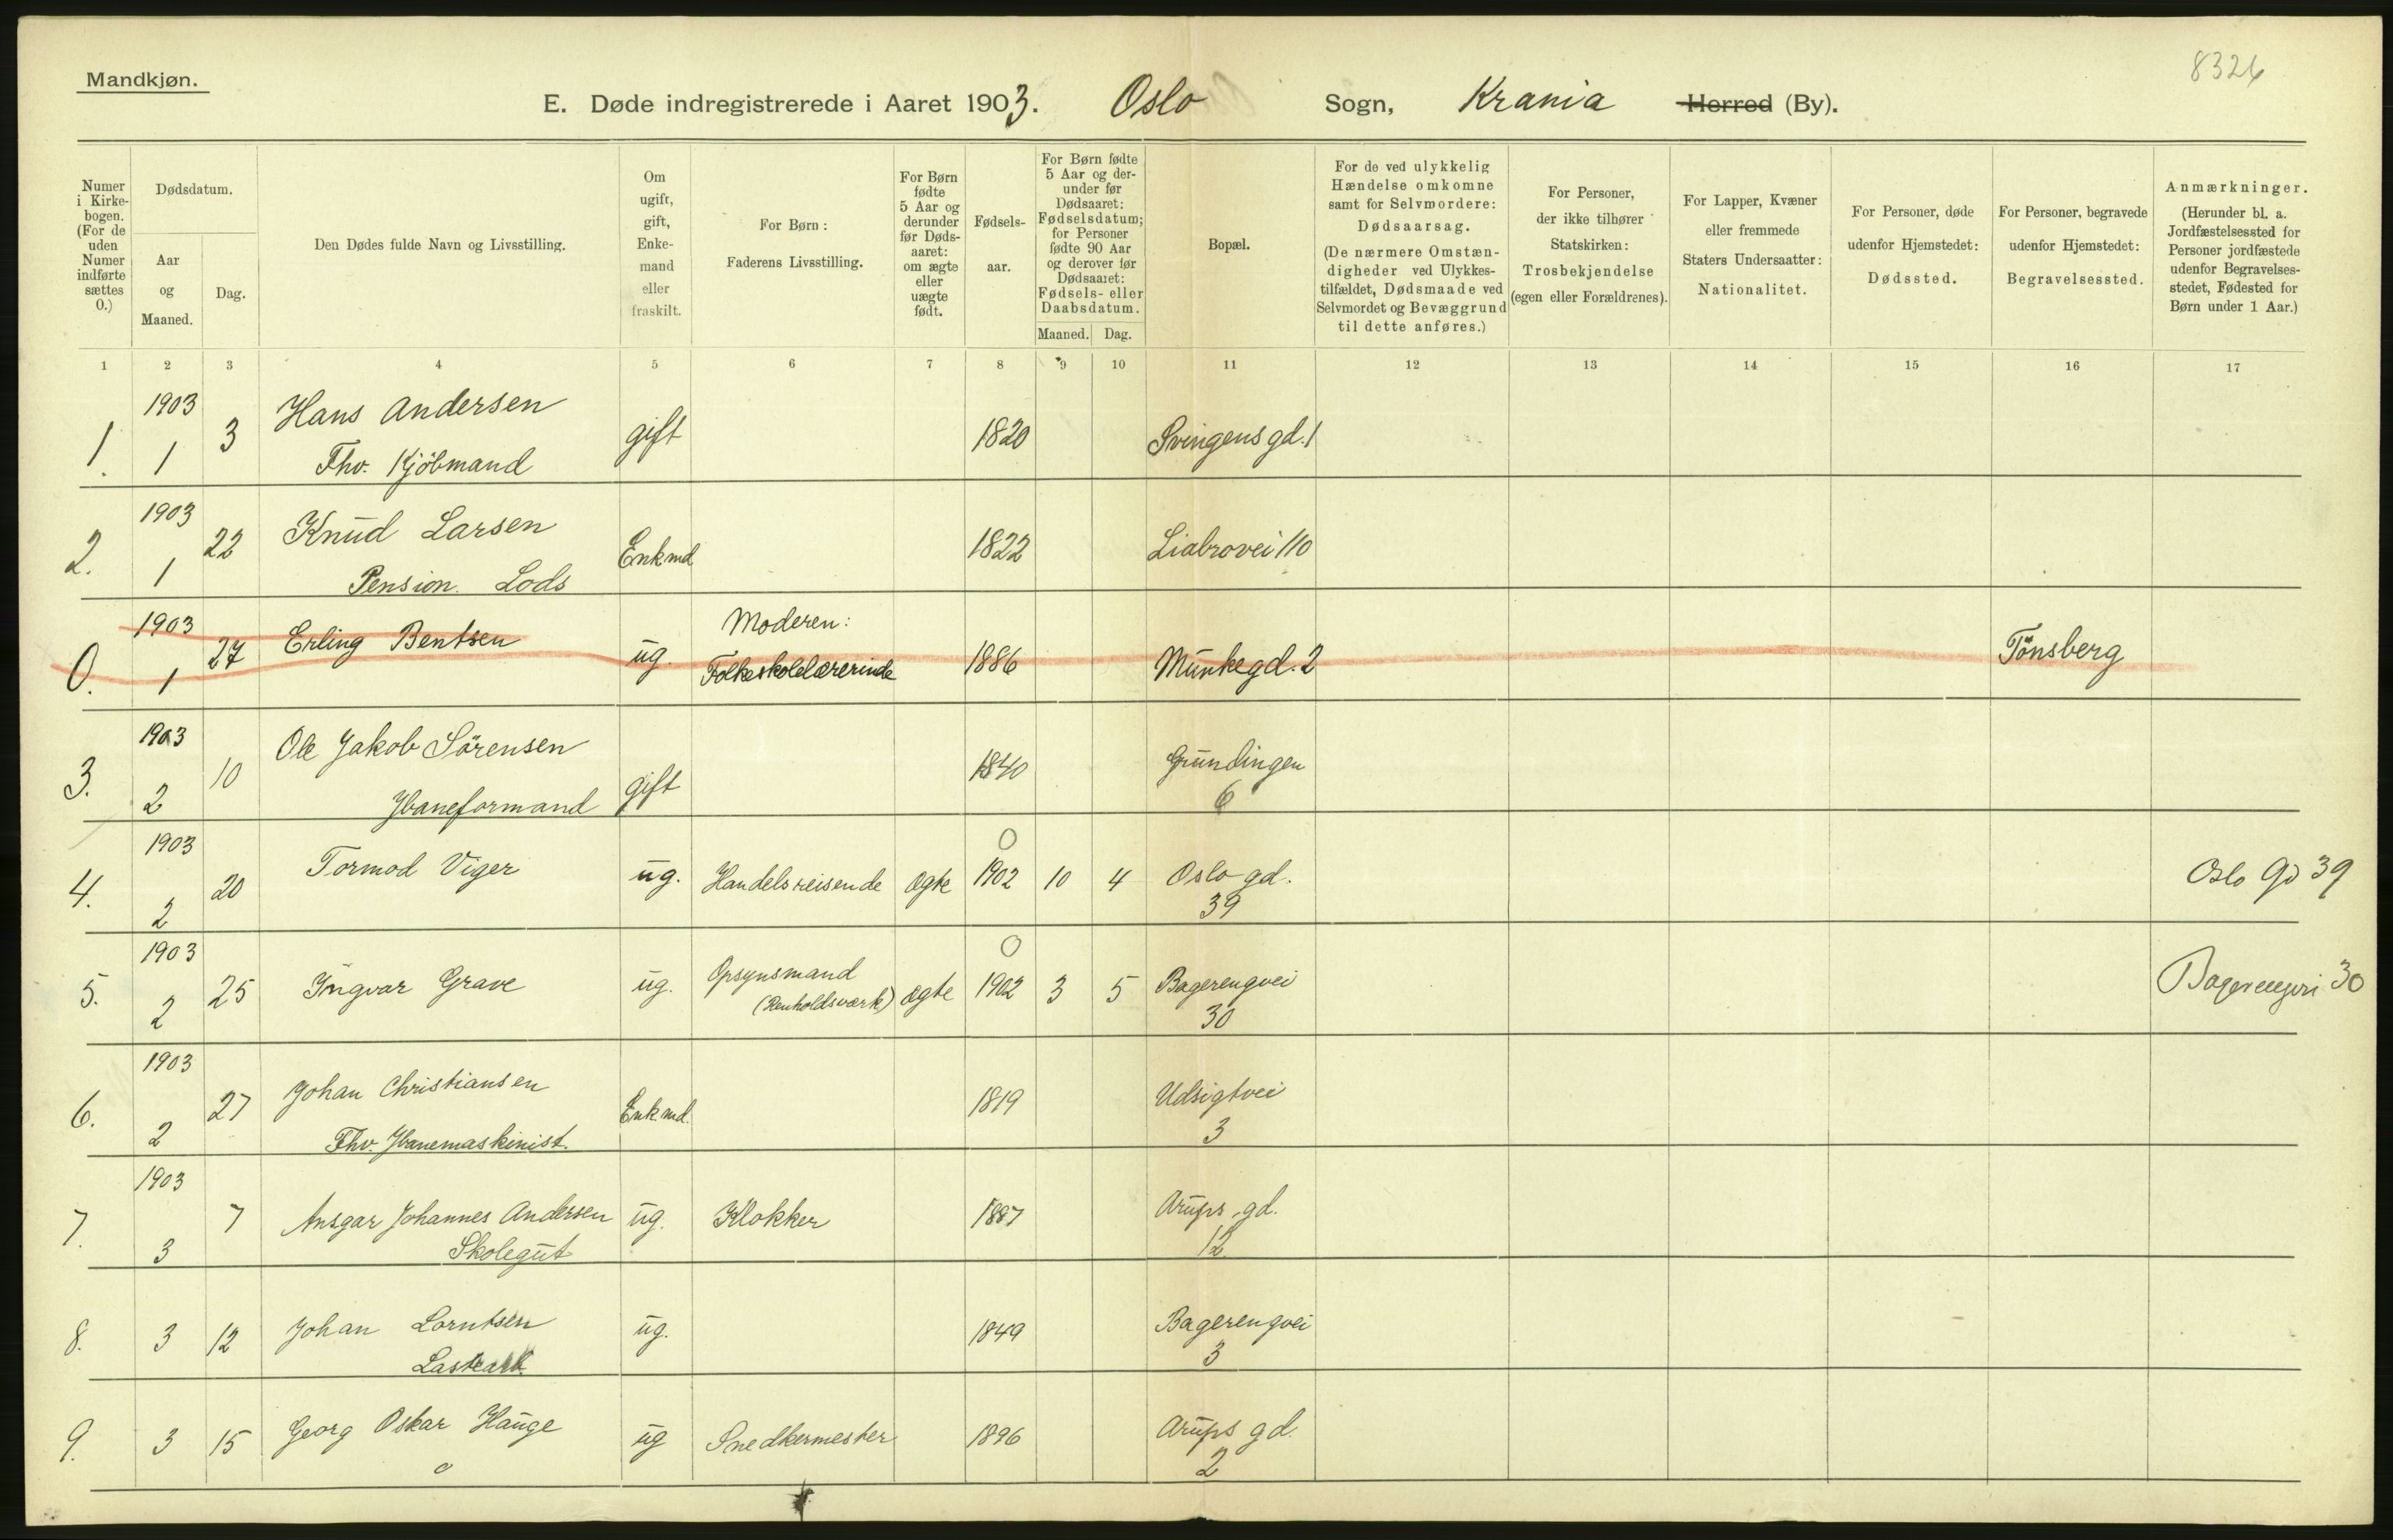 Mandkjøn.
8326
E. Døde indregistrerede i Aaret 1903. Oslo Sogn, Krania Herred (By).
Numer i Kirkebogen. (For de uden Numer indførte sættes 0.)
Dødsdatum.
Aar og Maaned.
Dag.
Den Dødes fulde Navn og Livsstilling.
Om ugift, gift, Enkemand eller fraskilt.
For Børn: Faderens Livsstilling.
For Børn fødte 5 Aar og derunder før Dødsaaret: om ægte eller uægte født.
Fødselsaar.
For Børn fødte 5 Aar og derunder før Dødsaaret: Fødselsdatum; for Personer fødte 90 Aar og derover før Dødsaaret: Fødsels- eller Daabsdatum.
Maaned. Dag.
Bopæl.
For de ved ulykkelig Hændelse omkomne samt for Selvmordere: Dødsaarsag. (De nærmere Omstændigheder ved Ulykkestilfældet, Dødsmaade ved Selvmordet og Bevæggrund til dette anføres.)
For Personer, der ikke tilhører Statskirken: Trosbekjendelse (egen eller Forældrenes).
For Lapper, Kvæner eller fremmede Staters Undersaatter: Nationalitet.
For Personer, døde udenfor Hjemstedet: Dødssted.
For Personer, begravede udenfor Hjemstedet: Begravelsessted.
Anmærkninger. (Herunder bl. a. Jordfæstelsessted for Personer jordfæstede udenfor Begravelsesstedet, Fødested for Børn under 1 Aar.)
1 2 3 4 5 6 7 8 9 10 11 12 13 14 15 16 17
1. 1903 1 3 Hans Andersen gift 1820 Svingensgd. 1
Fhv. Kjöbmand
2. 1903 1 22 Knud Larsen Enkmd 1822 Liabrovei 110
Pension. Lods
0. 1903 1 27 Erling Bentsen ug. Moderen: Folkeskolelærerinde 1886 Munkegd. 2 Tönsberg
3. 1903 2 10 Ole Jakob Sörensen gift 1840 Grundingen 6
Jbaneformand
4. 1903 2 20 Tormod Viger ug. Handelsreisende ægte 0 1902 10 4 Oslo gd. 39 Oslo Gd 39
5. 1903 2 25 Yngvar Grave ug. Opsynsmand (Renholdsværk) ægte 0 1902 3 5 Bagerengvei 30 Bagerengvei 30
6. 1903 2 27 Johan Christiansen Enkmd. 1819 Udsigtvei 3
Fhv. Jbanemaskinist.
7. 1903 3 7 Ansgar Johannes Andersen ug. Klokker 1887 Arups gd. 12
Skolegut
8. 3 12 Johan Lorntsen ug. 1849 Bagerengvei 3
9. 3 15 Georg Oskar Hauge ug Snedkermester 1896 Arups gd. 2